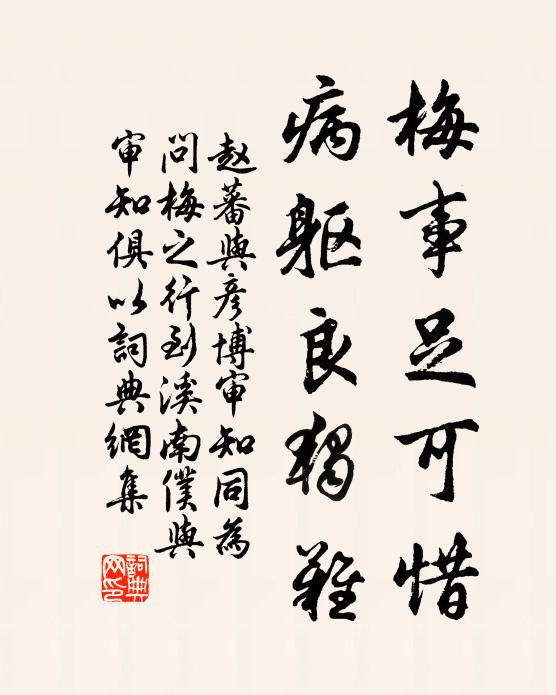 梅事足可惜
病躯良獨難
赵蕃與彦博审知同為
問梅之行到溪南僕與
审知俱以詞典網集
詞典网印